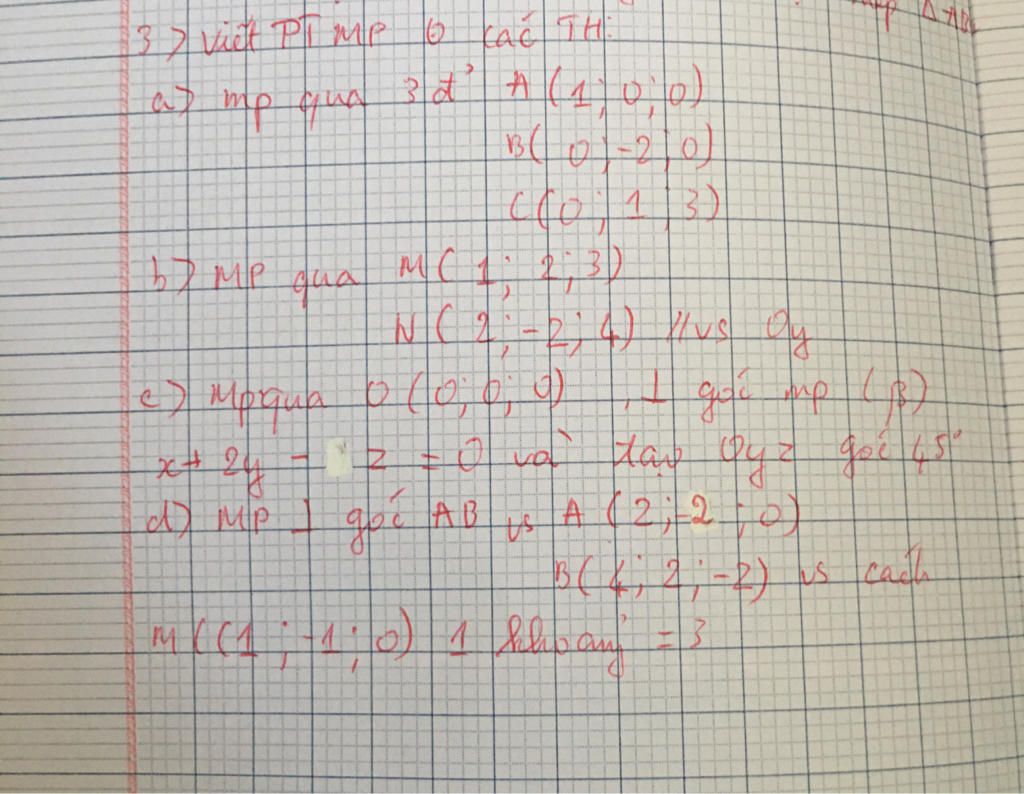 ΔAB
3) viết PT MP ở các TH:
a) mp qua 3 đ' A (1; 0; 0)
B( 0; -2; 0)
C(0; 1; 3)
b) MP qua M( 1; 2; 3)
N( 2; -2; 4) // vs Oy
c) Mp qua O (0; 0; 0) , ⊥ góc mp (β)
x + 2y - z = 0 và tạo Oyz góc 45°
d) MP ⊥ góc AB vs A ( 2; -2 ; 0)
B( 4; 2; -2) vs cách
M((1 ; -1; 0) 1 khoảng = 3